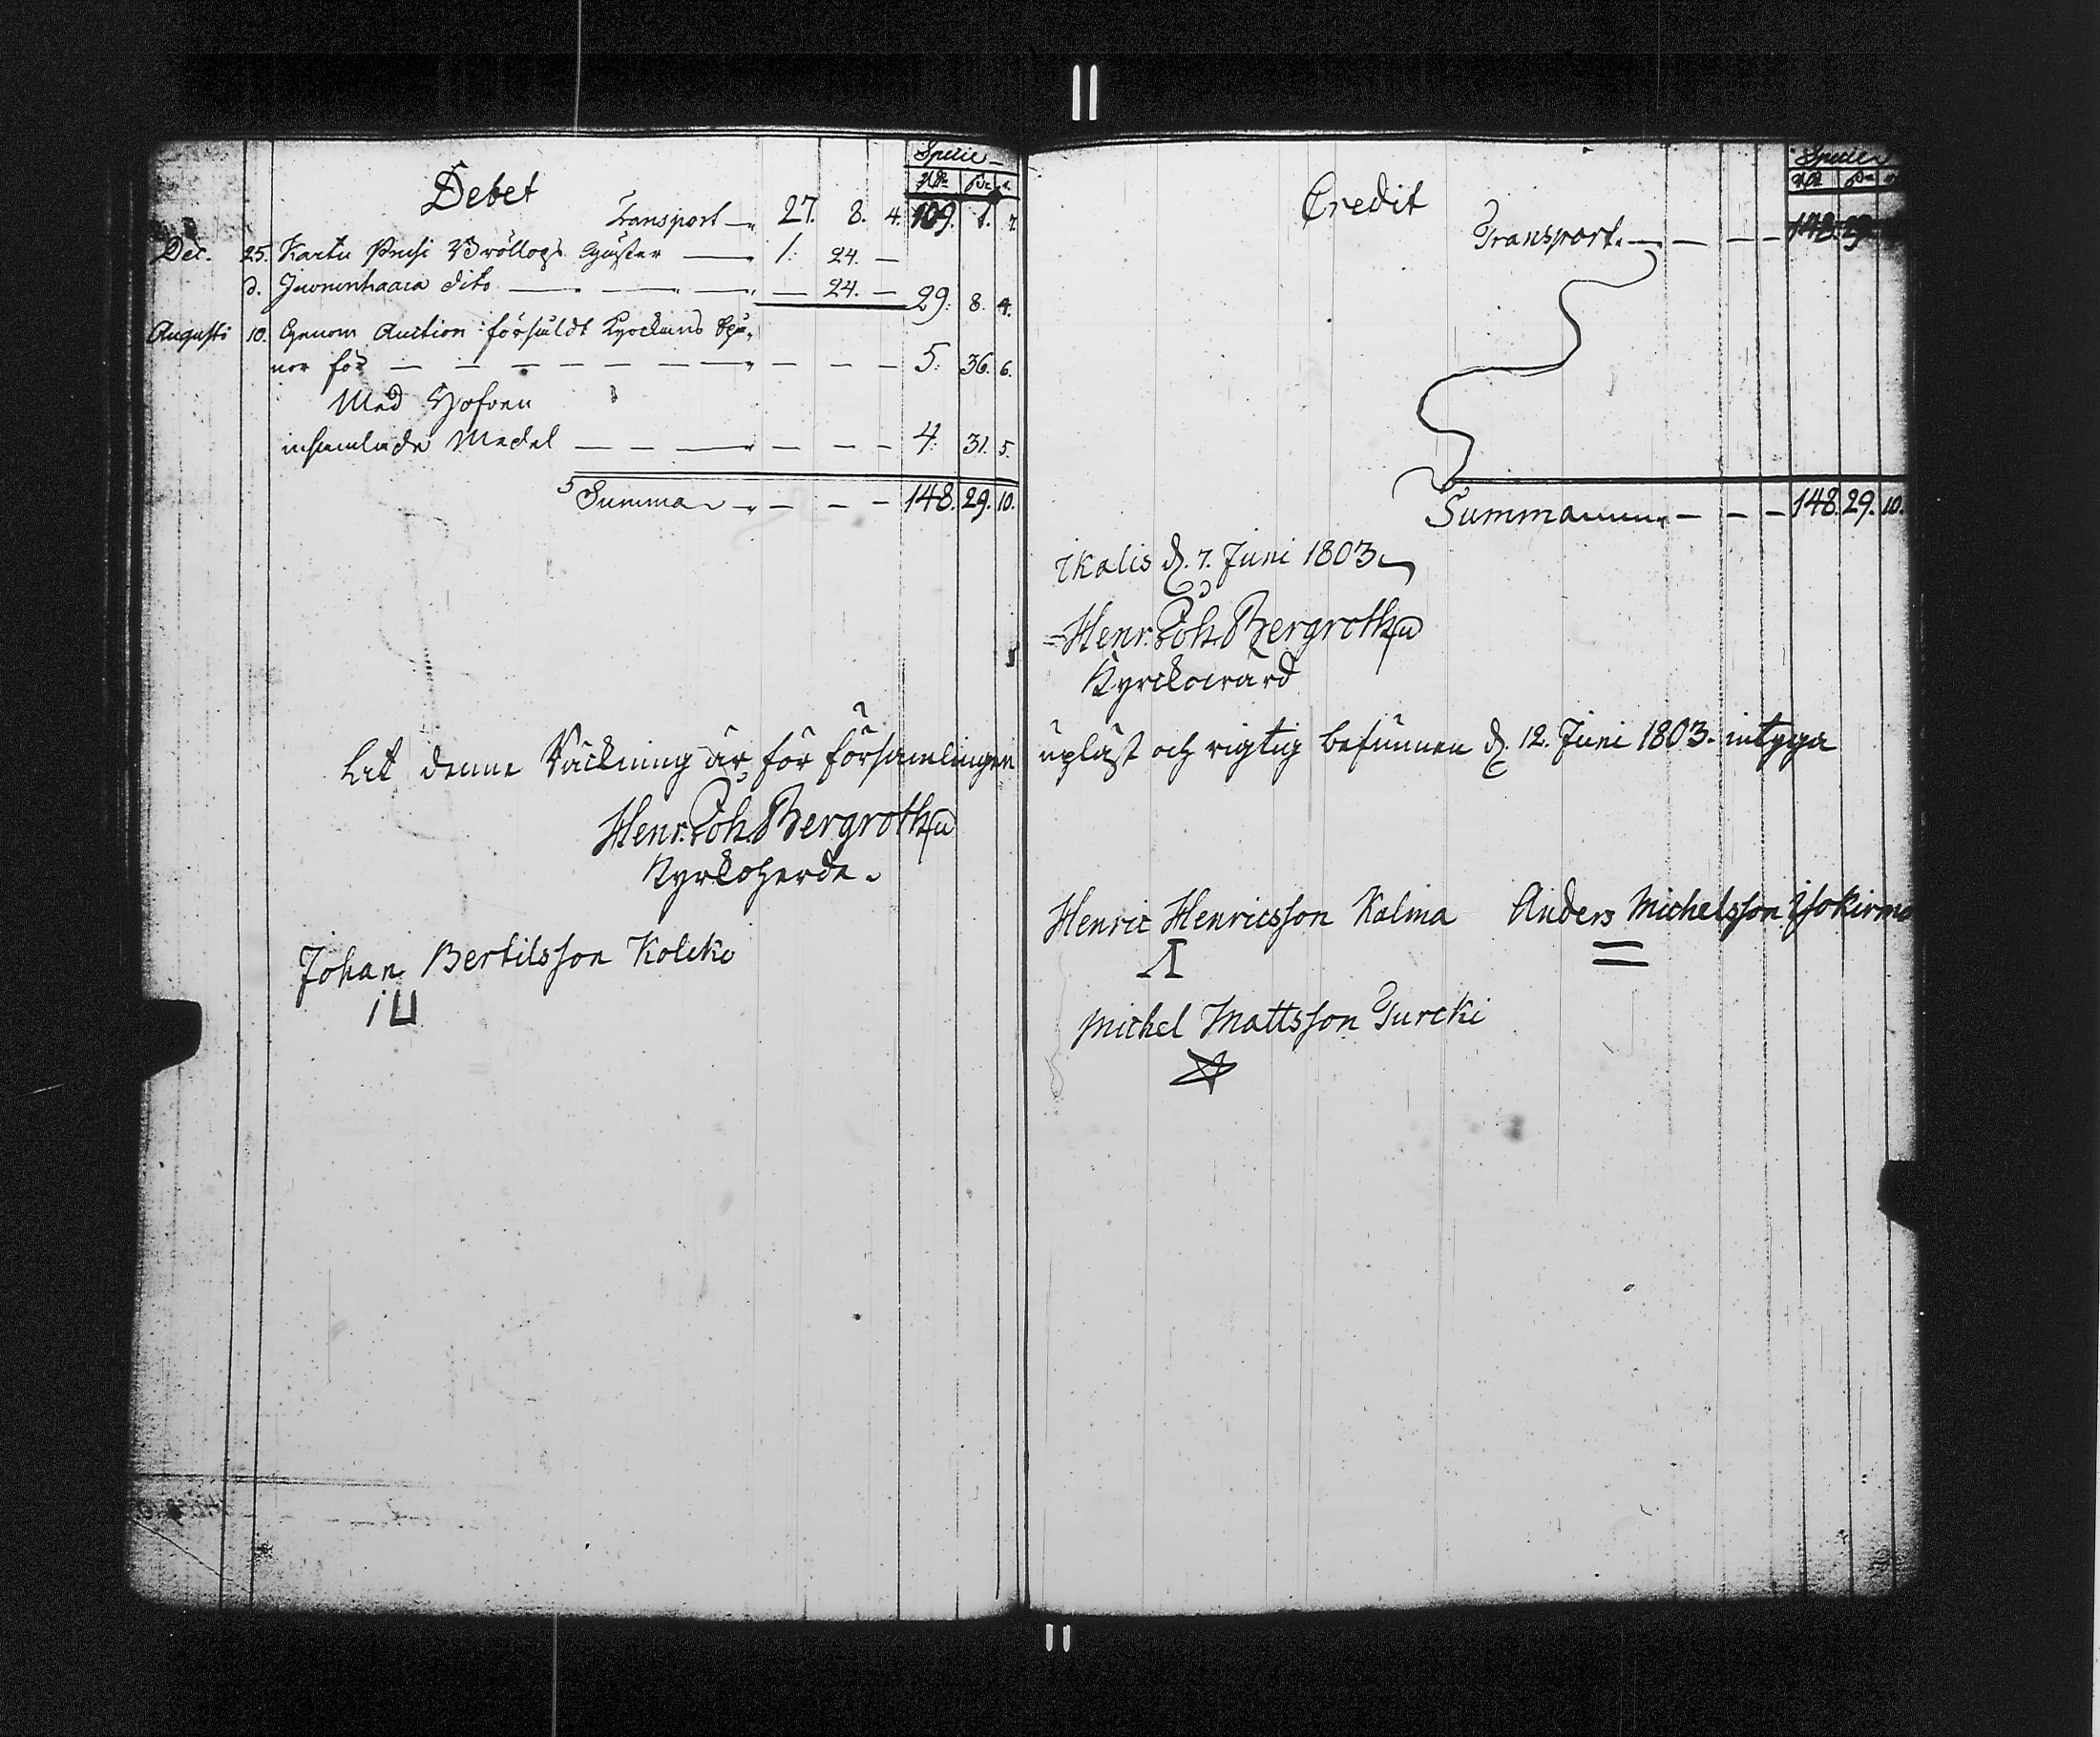 Specie
Rd: ß r
Debet
Transport 27. 8. 4. 109. 1. 7.
Dec. 25. Bröllops Gäster 1: 24. —
d. Juonenhaara dito — 24. — 29: 8. 4.
Augusti 10. Genom Auction försåldt Kyrckans
nor för — — — — 5: 36. 6.
Med Håfven
insamlade Medel — — — — 4: 31. 5.
Summa — — — 148. 29. 10.
Att denne Räckning är för församlingen
Henr. Joh. Bergroth
Kyrkoherde.
Johan Bertilsson Kolcko
Specie
Rd: ß r
Credit
Transport — — — — 148. 29.
Summa — — — 148. 29. 10.
Ikalis d. 7. Juni 1803
Henr. Joh. Bergroth
Kyrckoherde
upläst och rigtig befunnen d. 12. Juni 1803. intyga
Henric Henricsson Kalma Anders Michelsson
Michel Mattsson Turcki